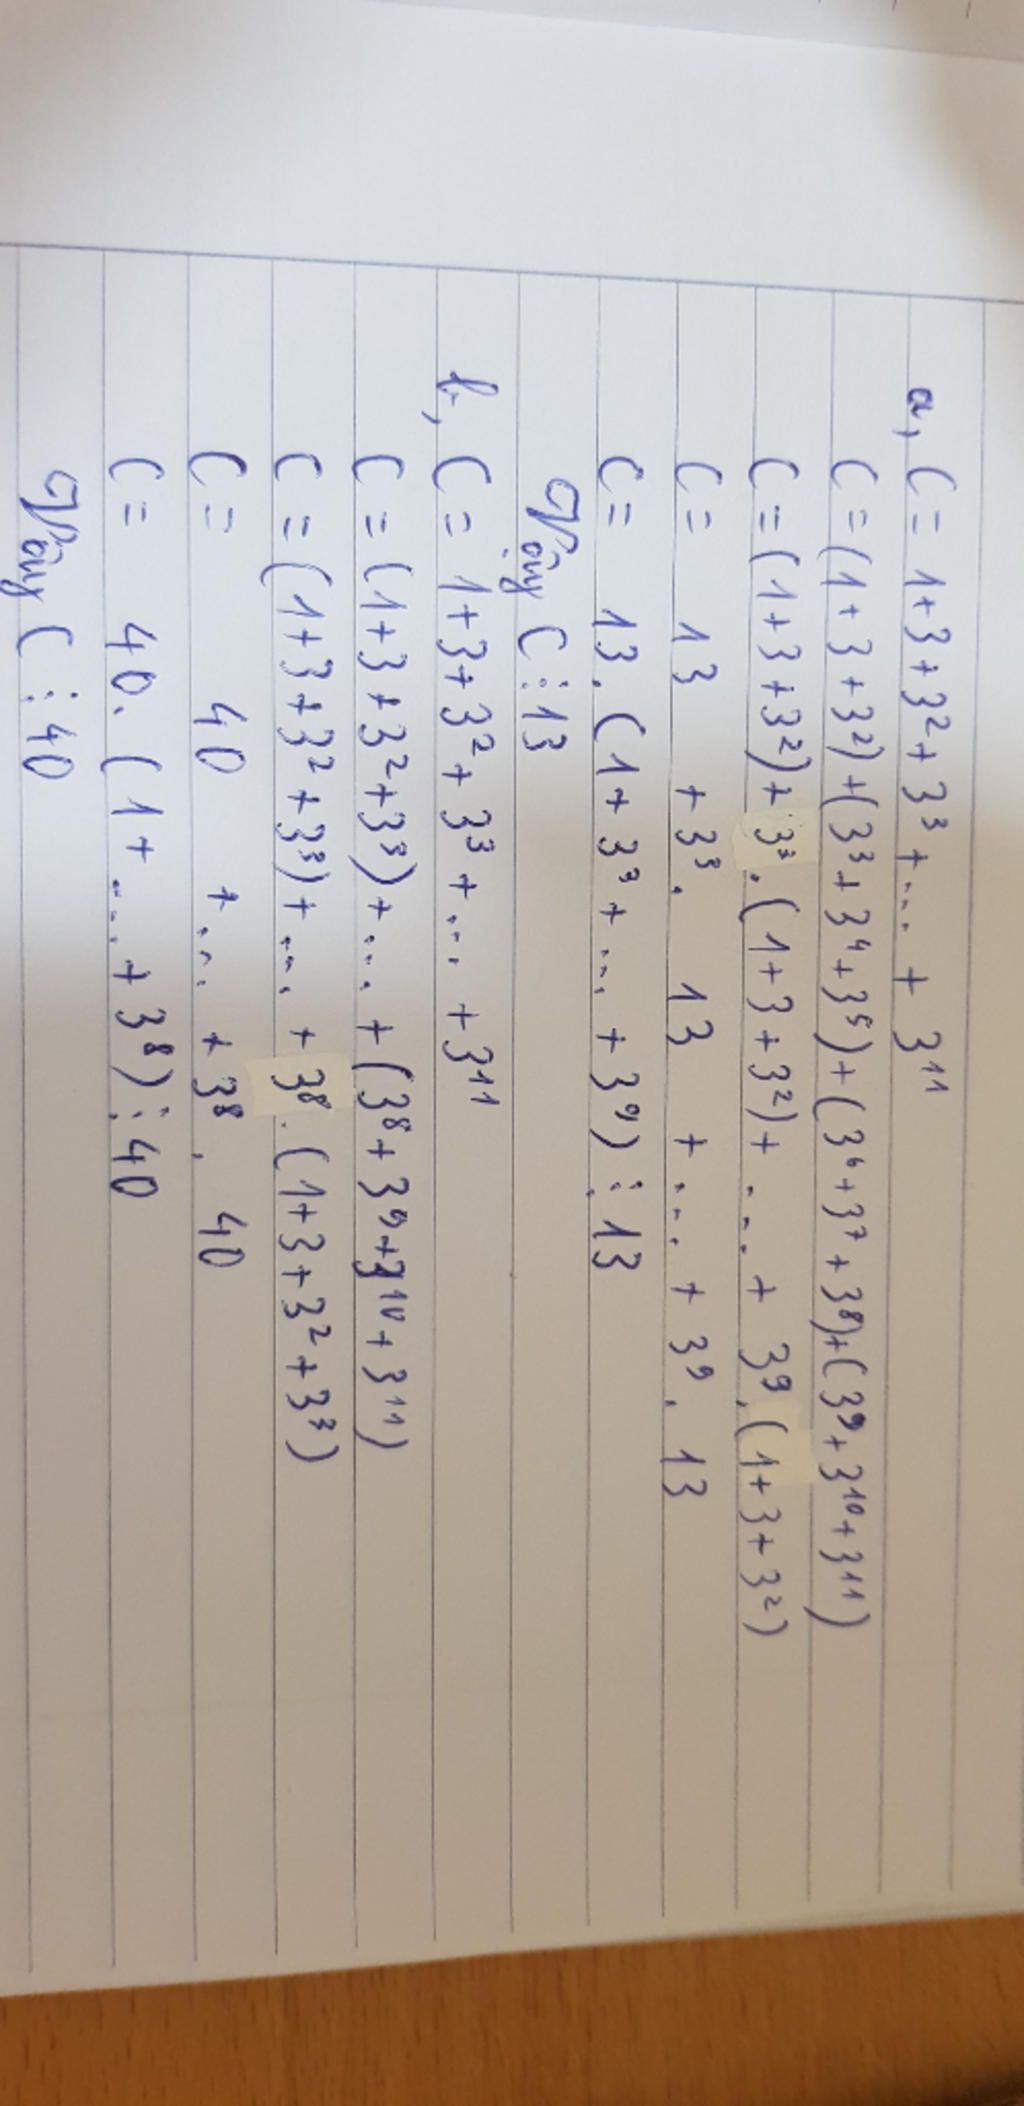 a, C = 1+3+3²+3³+... + 3¹¹
C = (1+3+3²)+(3³+3⁴+3⁵)+(3⁶+3⁷+3⁸)+(3⁹+3¹⁰+3¹¹)
C = (1+3+3²)+3³.(1+3+3²)+ ... + 3⁹.(1+3+3²)
C = 13 + 3³. 13 + ... + 3⁹. 13
C = 13. (1+3³+... +3⁹) ⋮ 13
Vậy C ⋮ 13
b, C = 1+3+3²+3³+... +3¹¹
C = (1+3+3²+3³)+... +(3⁸+3⁹+3¹⁰+3¹¹)
C = (1+3+3²+3³)+... +3⁸.(1+3+3²+3³)
C = 40 +... +3⁸. 40
C = 40. (1+...+3⁸) ⋮ 40
Vậy C ⋮ 40